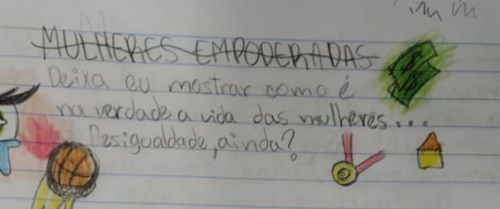 MULHERES EMPODERADAS
Deixa eu mostrar como é
na verdade a vida das mulheres...
Desigualdade, ainda?